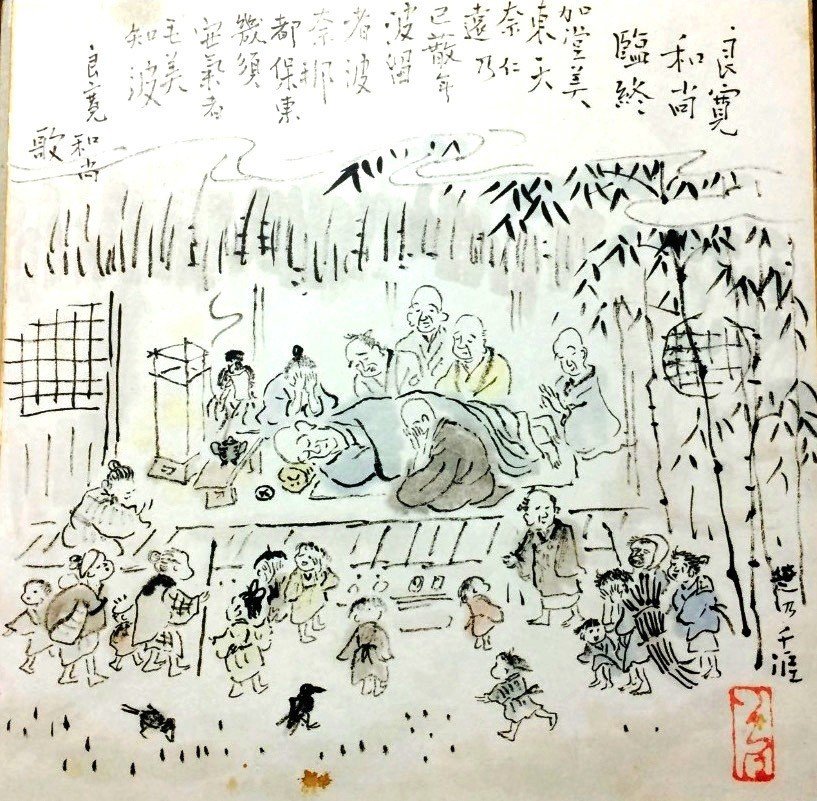 良寛
和尚
臨終
加堂美
東天
奈仁
遠乃
己散年
波留
者波
奈那
都保東
幾須
安氣者
毛美
知波
良寛和尚
歌
乃千涯